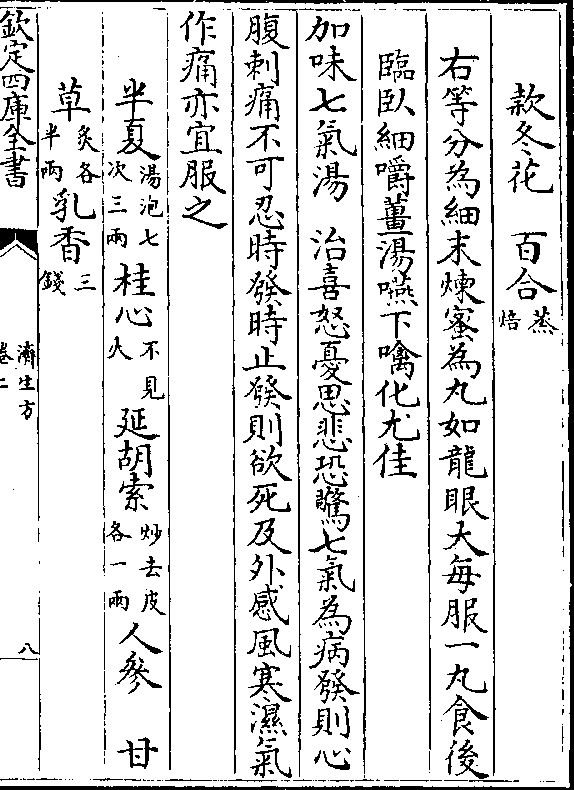 款冬花　百合蒸焙
右等分為細末煉蜜為丸如龍眼大每服一丸食後
臨臥細嚼薑湯嚥下噙化尤佳
加味七氣湯　治喜怒憂思悲恐驚七氣為病發則心
腹刺痛不可忍時發時止發則欲死及外感風寒濕氣
作痛亦宜服之
半夏湯泡七次三兩　桂心不見火　延胡索炒去皮各一兩　人參　甘
草炙各半兩　乳香三錢
欽定四庫全書　濟生方卷二　八